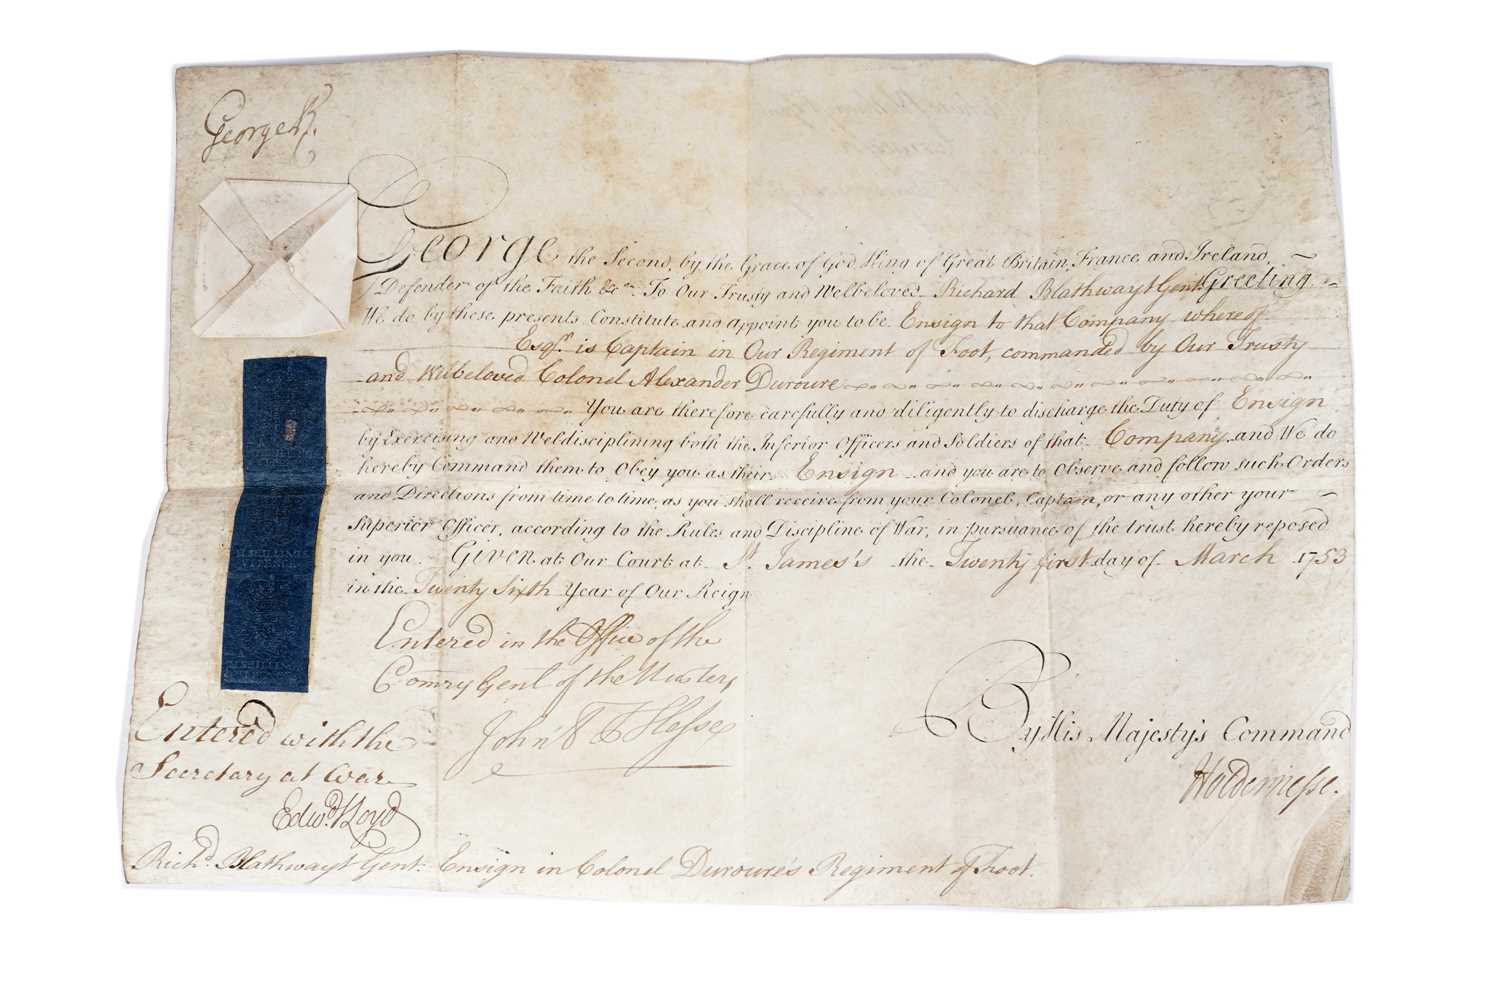 George R.
George the Second, by the Grace of God King of Great Britain, France and Ireland,
Defender of the Faith &c. To Our Trusty and Welbeloved Richard Blathwayt Gent. Greeting
We do by these presents Constitute and appoint you to be Ensign to that Company whereof
Esqr. is Captain in Our Regiment of Foot, commanded by Our Trusty
and Welbeloved Colonel Alexander Duroure
You are therefore carefully and diligently to discharge the Duty of Ensign
by Exercising and Weldisciplining both the Inferior Officers and Soldiers of that Company and We do
hereby Command them to Obey you as their Ensign and you are to observe and follow such Orders
and Directions from time to time, as you shall receive from your Colonel, Captain, or any other your
Superior Officer, according to the Rules and Discipline of War, in pursuance of the trust hereby reposed
in you. Given at Our Court at St. James's the Twenty first day of March 1753
in the Twenty Sixth Year of Our Reign
Entered in the Office of the
Comry Genl of the Musters
John
By His Majesty's Command
Holdernesse.
Entered with the
Secretary at War
Edwd. Lloyd
Richd. Blathwayt Gent: Ensign in Colonel Duroure's Regiment of Foot.